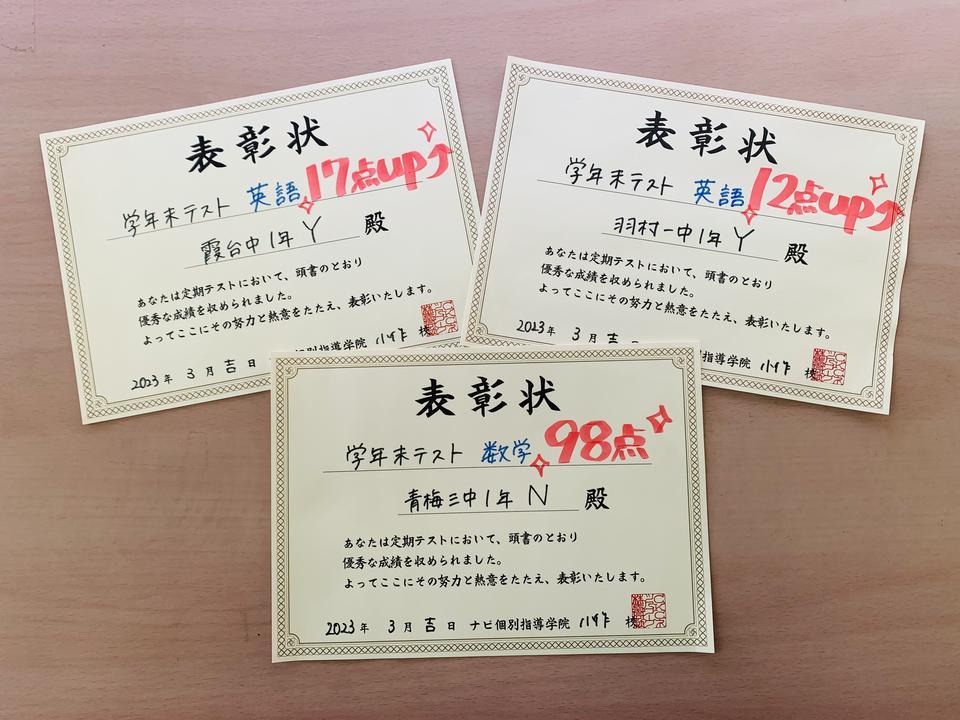 表彰状
学年末テスト 英語 17点up
霞台中1年 Y 殿
あなたは定期テストにおいて、頭書のとおり
優秀な成績を収められました。
よってここにその努力と熱意をたたえ、表彰いたします。
2023年 3月吉日 個別指導学院
表彰状
学年末テスト 英語 12点up
羽村一中1年 Y 殿
あなたは定期テストにおいて、頭書のとおり
優秀な成績を収められました。
よってここにその努力と熱意をたたえ、表彰いたします。
2023年 3月吉 指導学院
表彰状
学年末テスト 数学 98点
青梅三中1年 N 殿
あなたは定期テストにおいて、頭書のとおり
優秀な成績を収められました。
よってここにその努力と熱意をたたえ、表彰いたします。
2023年 3月吉日 ナビ個別指導学院 小作 校